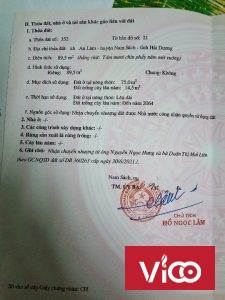 II. Thửa đất, nhà ở và tài sản khác gắn liền với đất
1. Thửa đất:
a. Thửa đất số: 352 Tờ bản đồ số: 21
b. Địa chỉ thửa đất: xã An Lâm - huyện Nam Sách - tỉnh Hải Dương
c. Diện tích: 89,5 m² (Bằng chữ: Tám mươi chín phẩy năm mét vuông)
d. Hình thức sử dụng:
Riêng: 89,5 m² Chung: Không
đ. Mục đích sử dụng: Đất ở tại nông thôn: 75,0 m²
Đất trồng cây lâu năm: 14,5 m²
e. Thời hạn sử dụng: Đất ở tại nông thôn: Lâu dài
Đất trồng cây lâu năm: Đến năm 2064
f. Nguồn gốc sử dụng: Nhận chuyển nhượng đất được Nhà nước công nhận quyền sử dụng đất
2. Nhà ở: -/-
3. Các công trình xây dựng khác: -/-
4. Rừng sản xuất là rừng trồng: -/-
5. Cây lâu năm: -/-
6. Ghi chú: Nhận chuyển nhượng từ ông Nguyễn Ngọc Hưng và bà Đoàn Thị Mai Liên
theo GCNQSD đất số DB 360263 cấp ngày 30/6/2021./.
Nam Sách,
TM. UỶ BAN
CHỦ TỊCH
HỒ NGỌC LÂM
Số vào sổ cấp Giấy chứng nhận: CH
VICO